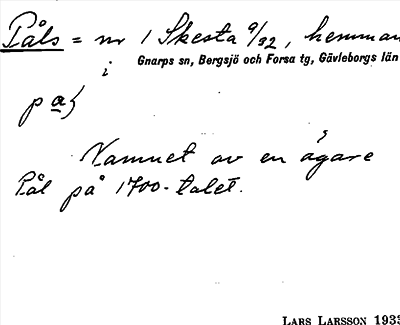 Påls = nr 1 Skesta 9/32, hemman
i
Gnarps sn, Bergsjö och Forsa tg, Gävleborgs län
Namnet av en ägare
Pål på 1700-talet.
LARS LARSSON 1933